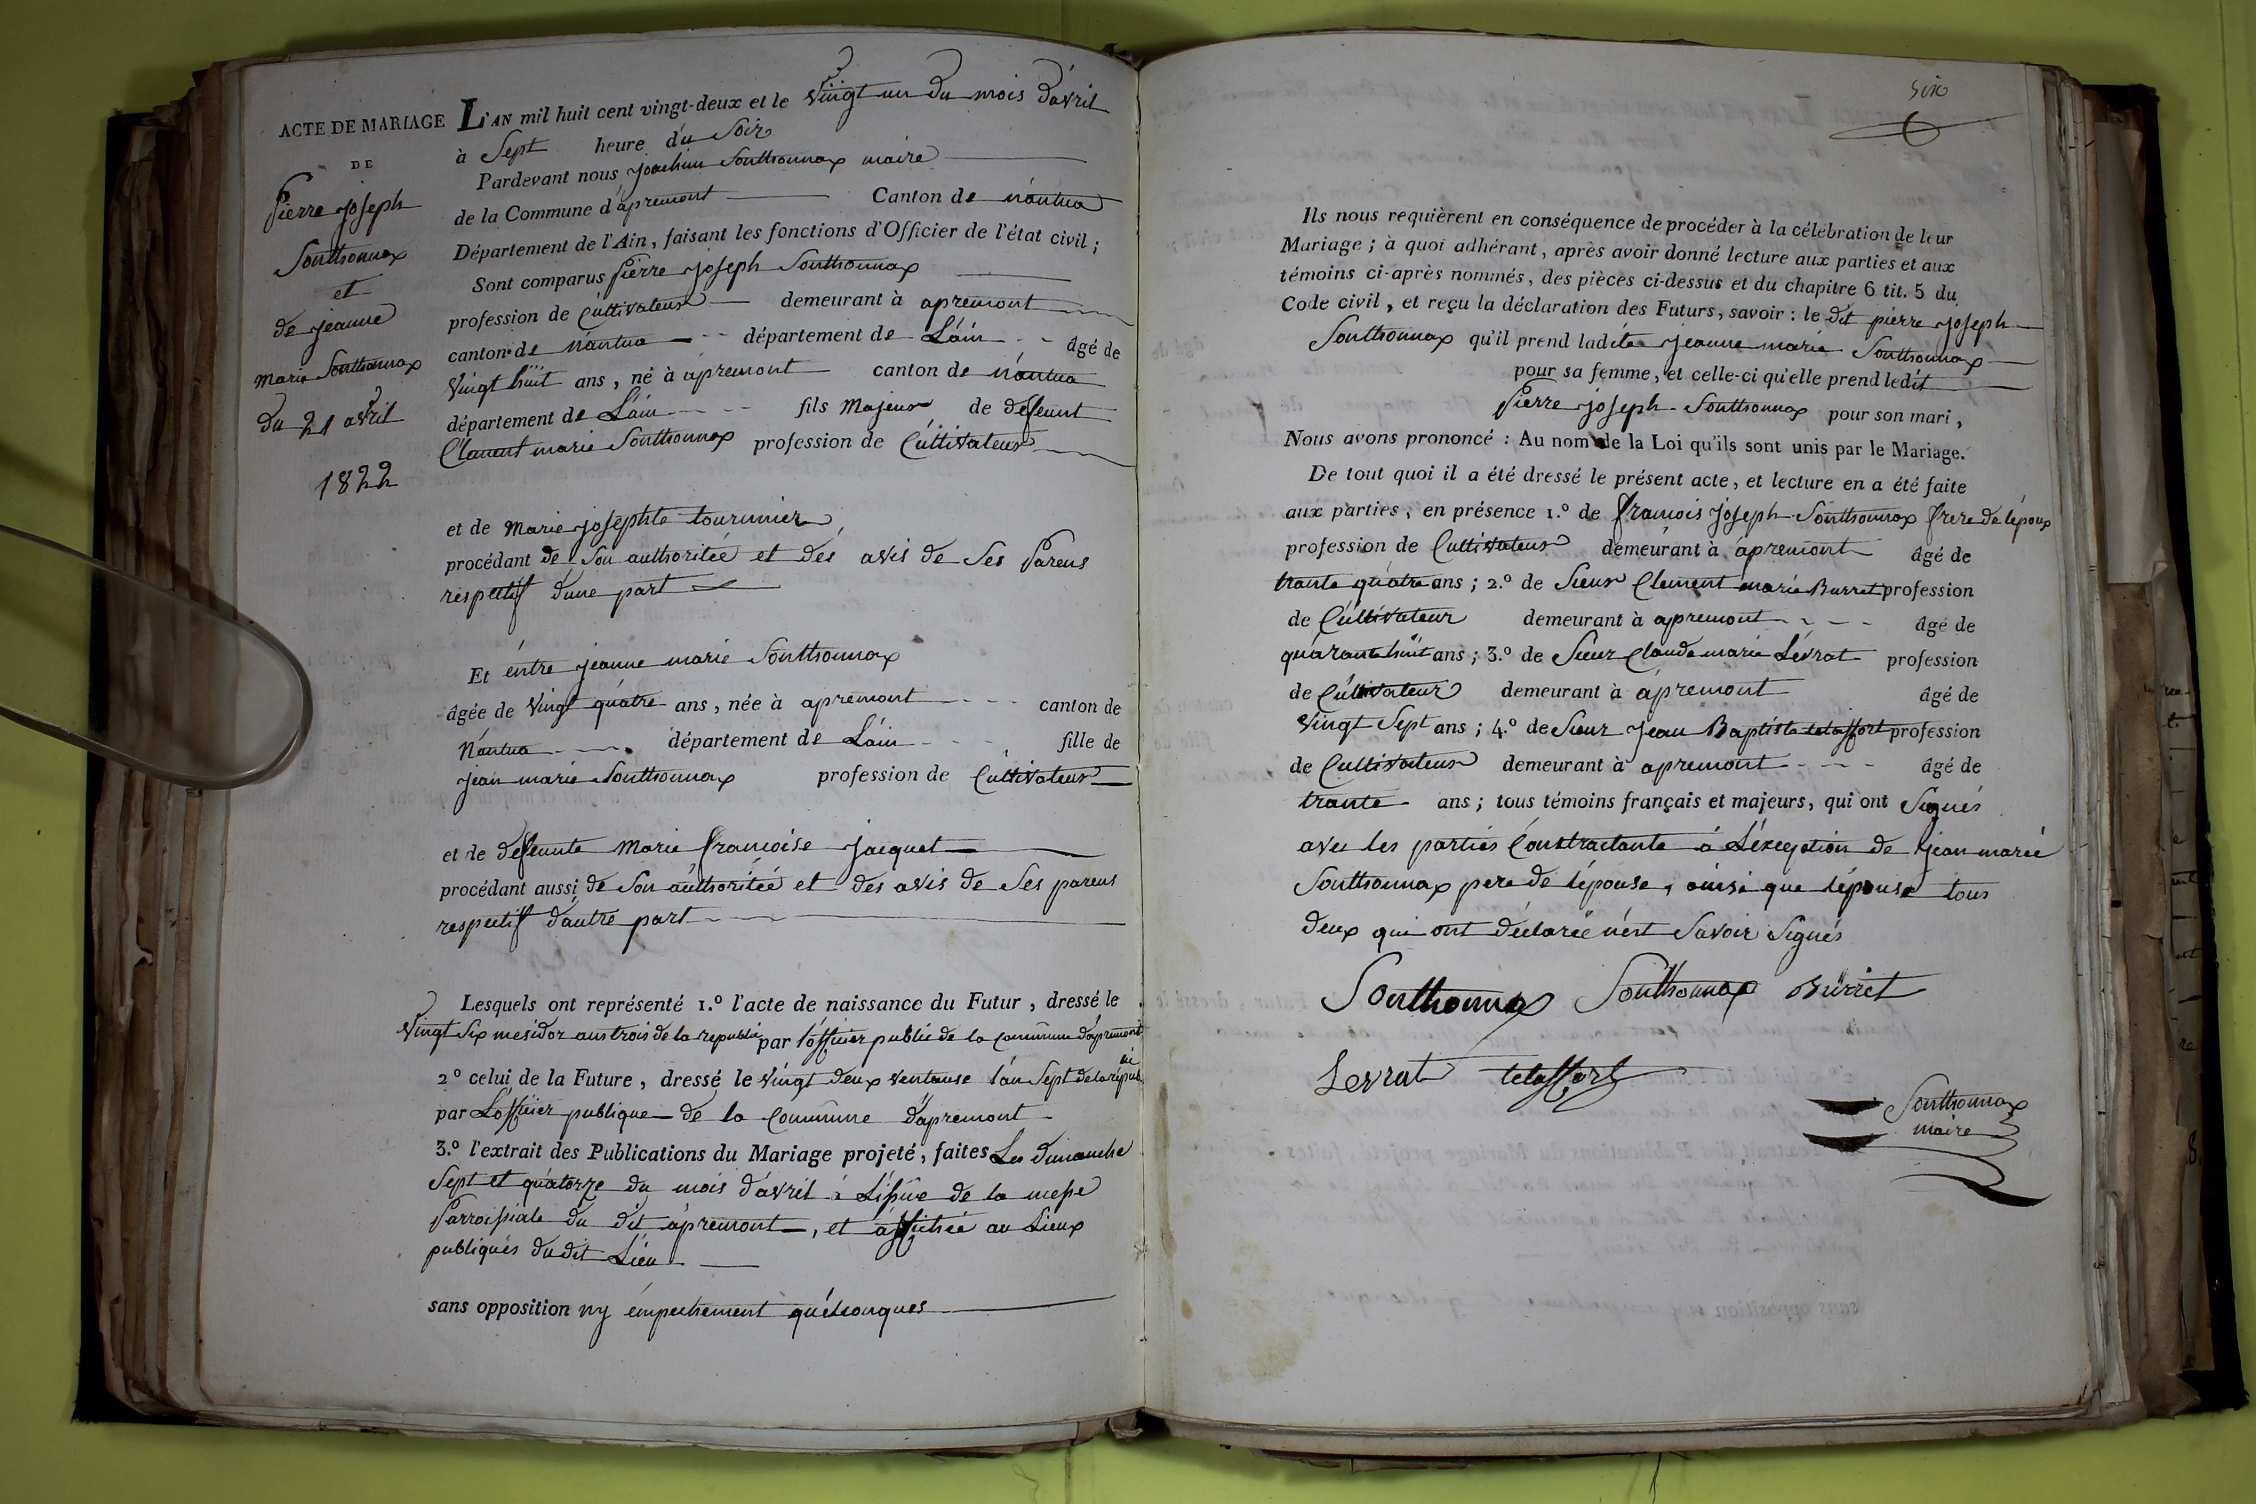 ACTE DE MARIAGE
DE
Pierre joseph
Sonthonnax
et
de jeanne
marie Sonthonnax
du 21 avril
1822
L'AN mil huit cent vingt-deux et le vingt un du mois d'avril
à Sept heure du Soir
Pardevant nous joachim Sonthonnax maire
de la Commune d'apremont Canton de nantua
Département de l'Ain, faisant les fonctions d'Officier de l'état civil ;
Sont comparus Pierre joseph Sonthonnax
profession de Cultivateur demeurant à apremont
canton de nantua département de L'ain âgé de
vingt huit ans, né à apremont canton de nantua
département de L'ain fils Majeur de defeunt
Clement marie Sonthonnax profession de Cultivateur
et de Marie josephte tournier
procédant de Son authoritée et des avis de Ses Parens
respectif d'une part
Et entre jeanne marie Sonthonnax
âgée de vingt quatre ans, née à apremont canton de
Nantua département de L'ain fille de
jean marie Sonthonnax profession de Cultivateur
et de defeunte Marie francoise jacquet
procédant aussi de Son authoritée et des avis de Ses parens
respectif d'autre part
Lesquels ont représenté 1.º l'acte de naissance du Futur, dressé le
vingt Six mesidor ans trois de la republi par l'officier public de la commune d'apremont
2º celui de la Future, dressé le vingt deux ventause l'an Sept de la republi
par L'officier publique de la Commune d'apremont
3.º l'extrait des Publications du Mariage projeté, faites Les dimanche
Sept et quatorze du mois d'avril à L'issue de la messe
Parroissiale du dit apremont, et affichée au Lieux
publiques dudit Lieu
sans opposition ny émpechement quélconques
Six
6
Ils nous requièrent en conséquence de procéder à la célebration de leur
Mariage ; à quoi adhérant, après avoir donné lecture aux parties et aux
témoins ci-après nommés, des pièces ci-dessus et du chapitre 6 tit. 5 du
Code civil, et reçu la déclaration des Futurs, savoir : le dit pierre joseph
Sonthonnax qu'il prend ladite jeanne marie Sonthonnax
pour sa femme, et celle-ci qu'elle prend ledit
Pierre joseph Sonthonnax pour son mari,
Nous avons prononcé : Au nom de la Loi qu'ils sont unis par le Mariage.
De tout quoi il a été dressé le présent acte, et lecture en a été faite
aux parties, en présence 1.º de francois joseph Sonthonnax frere de l'époux
profession de Cultivateur demeurant à apremont âgé de
trante quatre ans ; 2.º de Sieur Clement marie Burret profession
de Cultivateur demeurant à apremont âgé de
quarante huit ans ; 3.º de Sieur Claude marie Levrat profession
de Cultivateur demeurant à apremont âgé de
vingt Sept ans ; 4.º de Sieur jean Baptiste telaffort profession
de Cultivateur demeurant à apremont âgé de
trante ans ; tous témoins français et majeurs, qui ont Signés
avec les parties Contractante à L'exception de jean marie
Sonthonnax pere de l'épouse, ainsi que l'épouse tous
deux qui ont declarée n'ért Savoir Signés
Sonthonnax Sonthonnax Burret
Levrat telaffort
Sonthonnax
maire